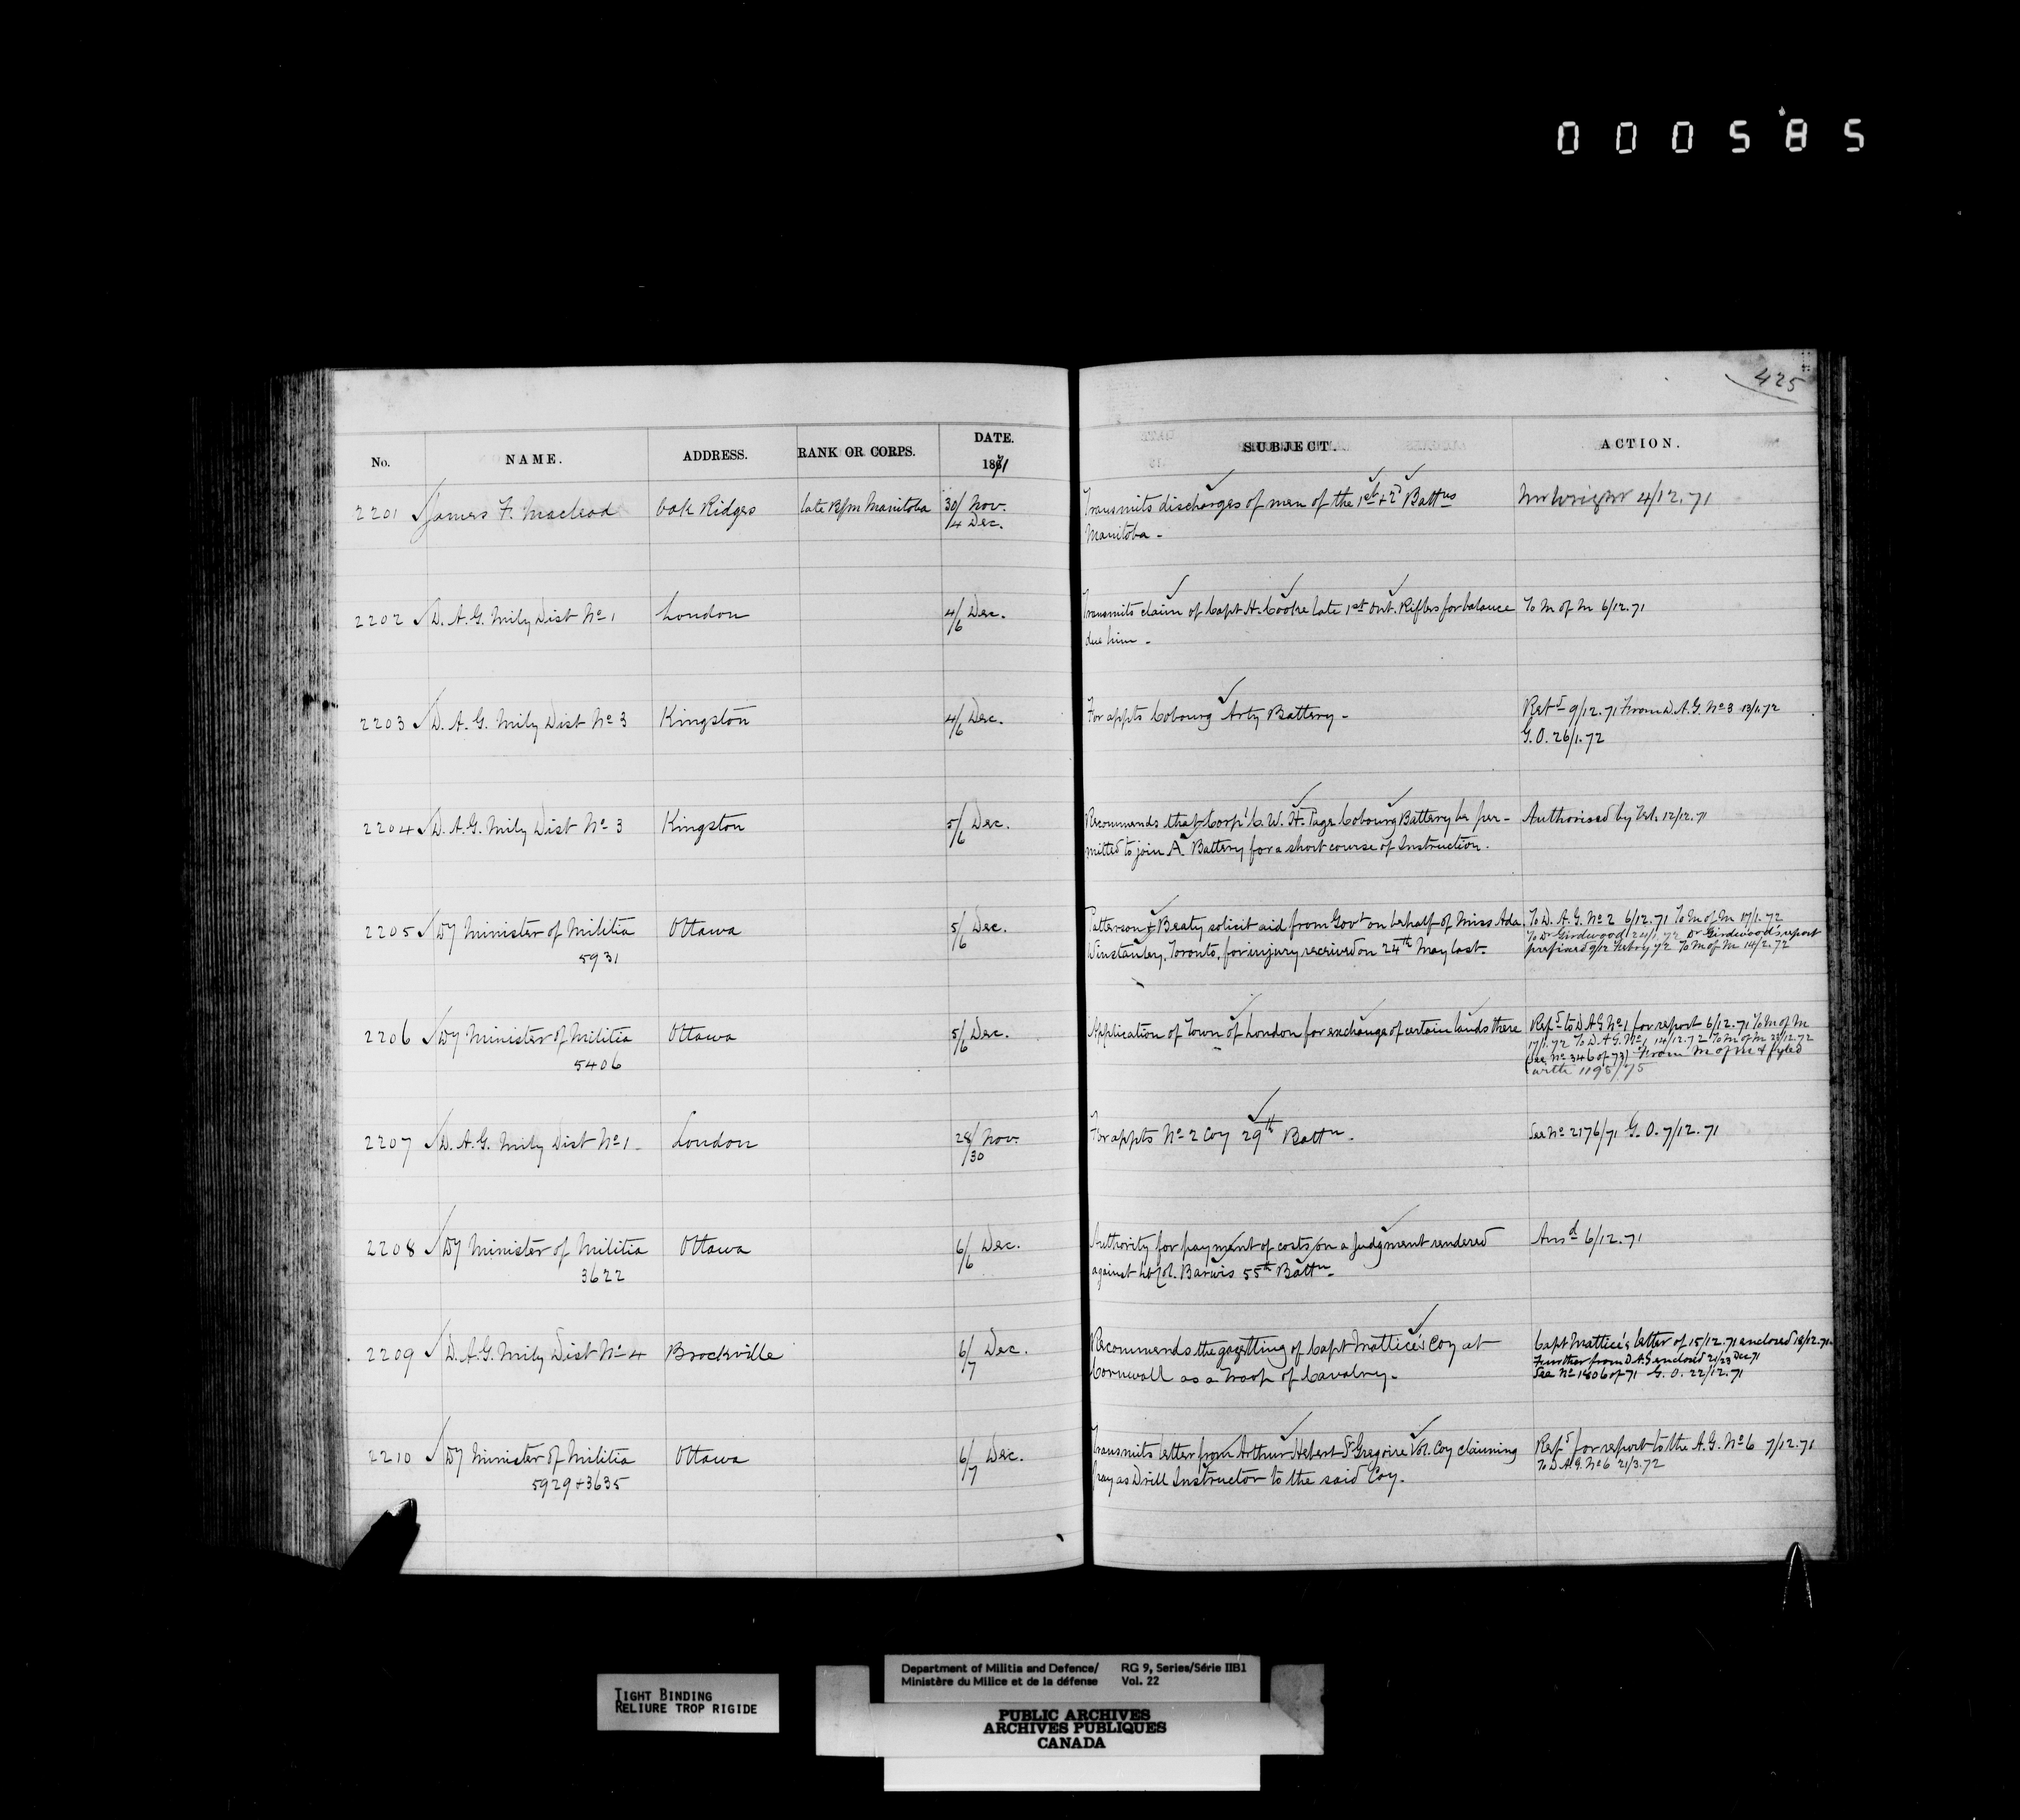 000585
425
No. NAME. ADDRESS. RANK OR CORPS. DATE. 1871 SUBJECT. ACTION.
2201 James F. Macleod Oak Ridges late B/m Manitoba 30/ Nov. /4 Dec. Transmits discharges of men of the 1st + 2d Battns Mr Wright 4/12.71
Manitoba -
2202 D. A. G. Mily Dist No 1 London 4/6 Dec. Transmits claim of Capt H. Cooke late 1st Ont. Rifles for balance To M of M 6/12.71
due him -
2203 D. A. G. Mily Dist No 3 Kingston 4/6 Dec. For appts Cobourg Arty Battery - Retd 9/12.71 From D.A.G. No 3 13/1.72
G. O. 26/1.72
2204 D. A. G. Mily Dist No 3 Kingston 5/6 Dec. Recommends that Corpl C. W. H. Page Cobourg Battery be per- Authorised by Tel. 12/12.71
mitted to join A Battery for a short course of Instruction.
2205 Dy Minister of Militia Ottawa 5/6 Dec. Patterson & Beaty solicit aid from Govt on behalf of Miss Ada To D. A. G. No 2 6/12.71 To M of M 17/1.72
5931 Winstanley, Toronto, for injury received on 24th May last. To Dr Girdwood 24/1.72 Dr Girdwood's report
9/12 Febry 72 To M of M 14/2.72
2206 Dy Minister of Militia Ottawa 5/6 Dec. Application of Town of London for exchange of certain lands there Refd to D A G No 1 for report 6/12.71 To M of M
5406 17/1.72 To D.A.G. No 1 14/12.72 To M of M 28/12.72
(See No 346 of 73) From M of M & fyled
with 1195/75
2207 D. A. G. Mily Dist No 1 - London 28/ Nov. /30 For appts No 2 Coy 29th Battn. See No 2176/71 G. O. 7/12.71
2208 Dy Minister of Militia Ottawa 6/6 Dec. Authority for payment of costs on a Judgment rendered Ansd 6/12.71
3622 against Lt Col. Barwis 55th Battn.
2209 D. A. G. Mily Dist No 4 Brockville 6/7 Dec. Recommends the gazetting of Capt Mattice's Coy at Capt Mattice's letter of 15/12.71 enclosed 18/12.71.
Cornwall as a Troop of Cavalry. Further from D.A.G enclosed 21/23 Dec 71
See No 1806 of 71 G. O. 22/12.71
2210 Dy Minister of Militia Ottawa 6/7 Dec. Transmits letter from Arthur Hebert St Gregoire Vol. Coy claiming Refd for report to the A. G. No 6 7/12.71
5929 + 3635 pay as Drill Instructor to the said Coy. To D.A.G. No 6 21/3.72
TIGHT BINDING
RELIURE TROP RIGIDE
Department of Militia and Defence/ RG 9, Series/Série IIB1
Ministère du Milice et de la défense Vol. 22
PUBLIC ARCHIVES
ARCHIVES PUBLIQUES
CANADA